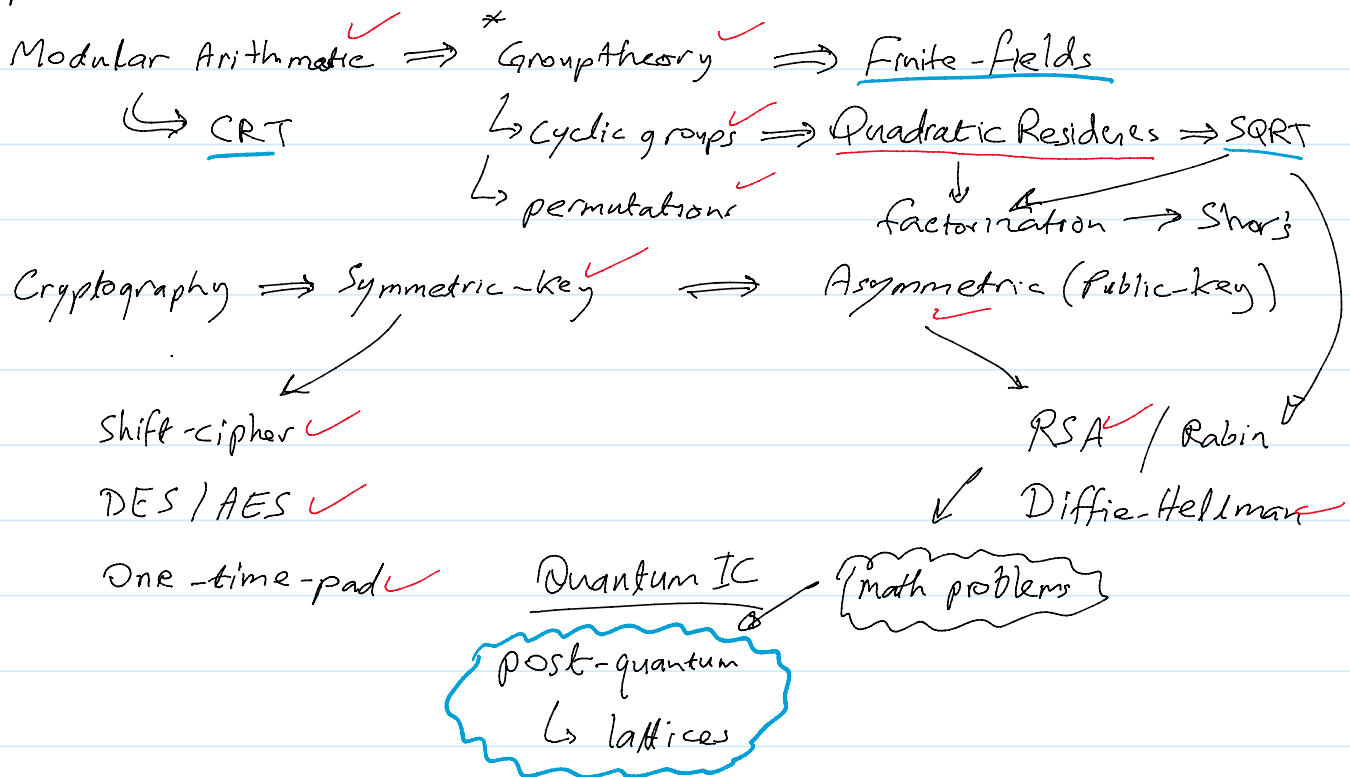 Modular Arithmatic ✓ ⇒ * Group theory ✓ ⇒ Finite-fields
↳ CRT ↳ Cyclic groups ✓ ⇒ Quadratic Residues ⇒ SQRT
↳ permutations ✓ factorization → Shor's
Cryptography ⇒ Symmetric-key ✓ ⇔ Asymmetric (Public-key) ✓
Shift-cipher ✓ RSA ✓ / Rabin
DES / AES ✓ Diffie-Hellman ✓
One-time-pad ✓ Quantum IC math problems
post-quantum
↳ lattices